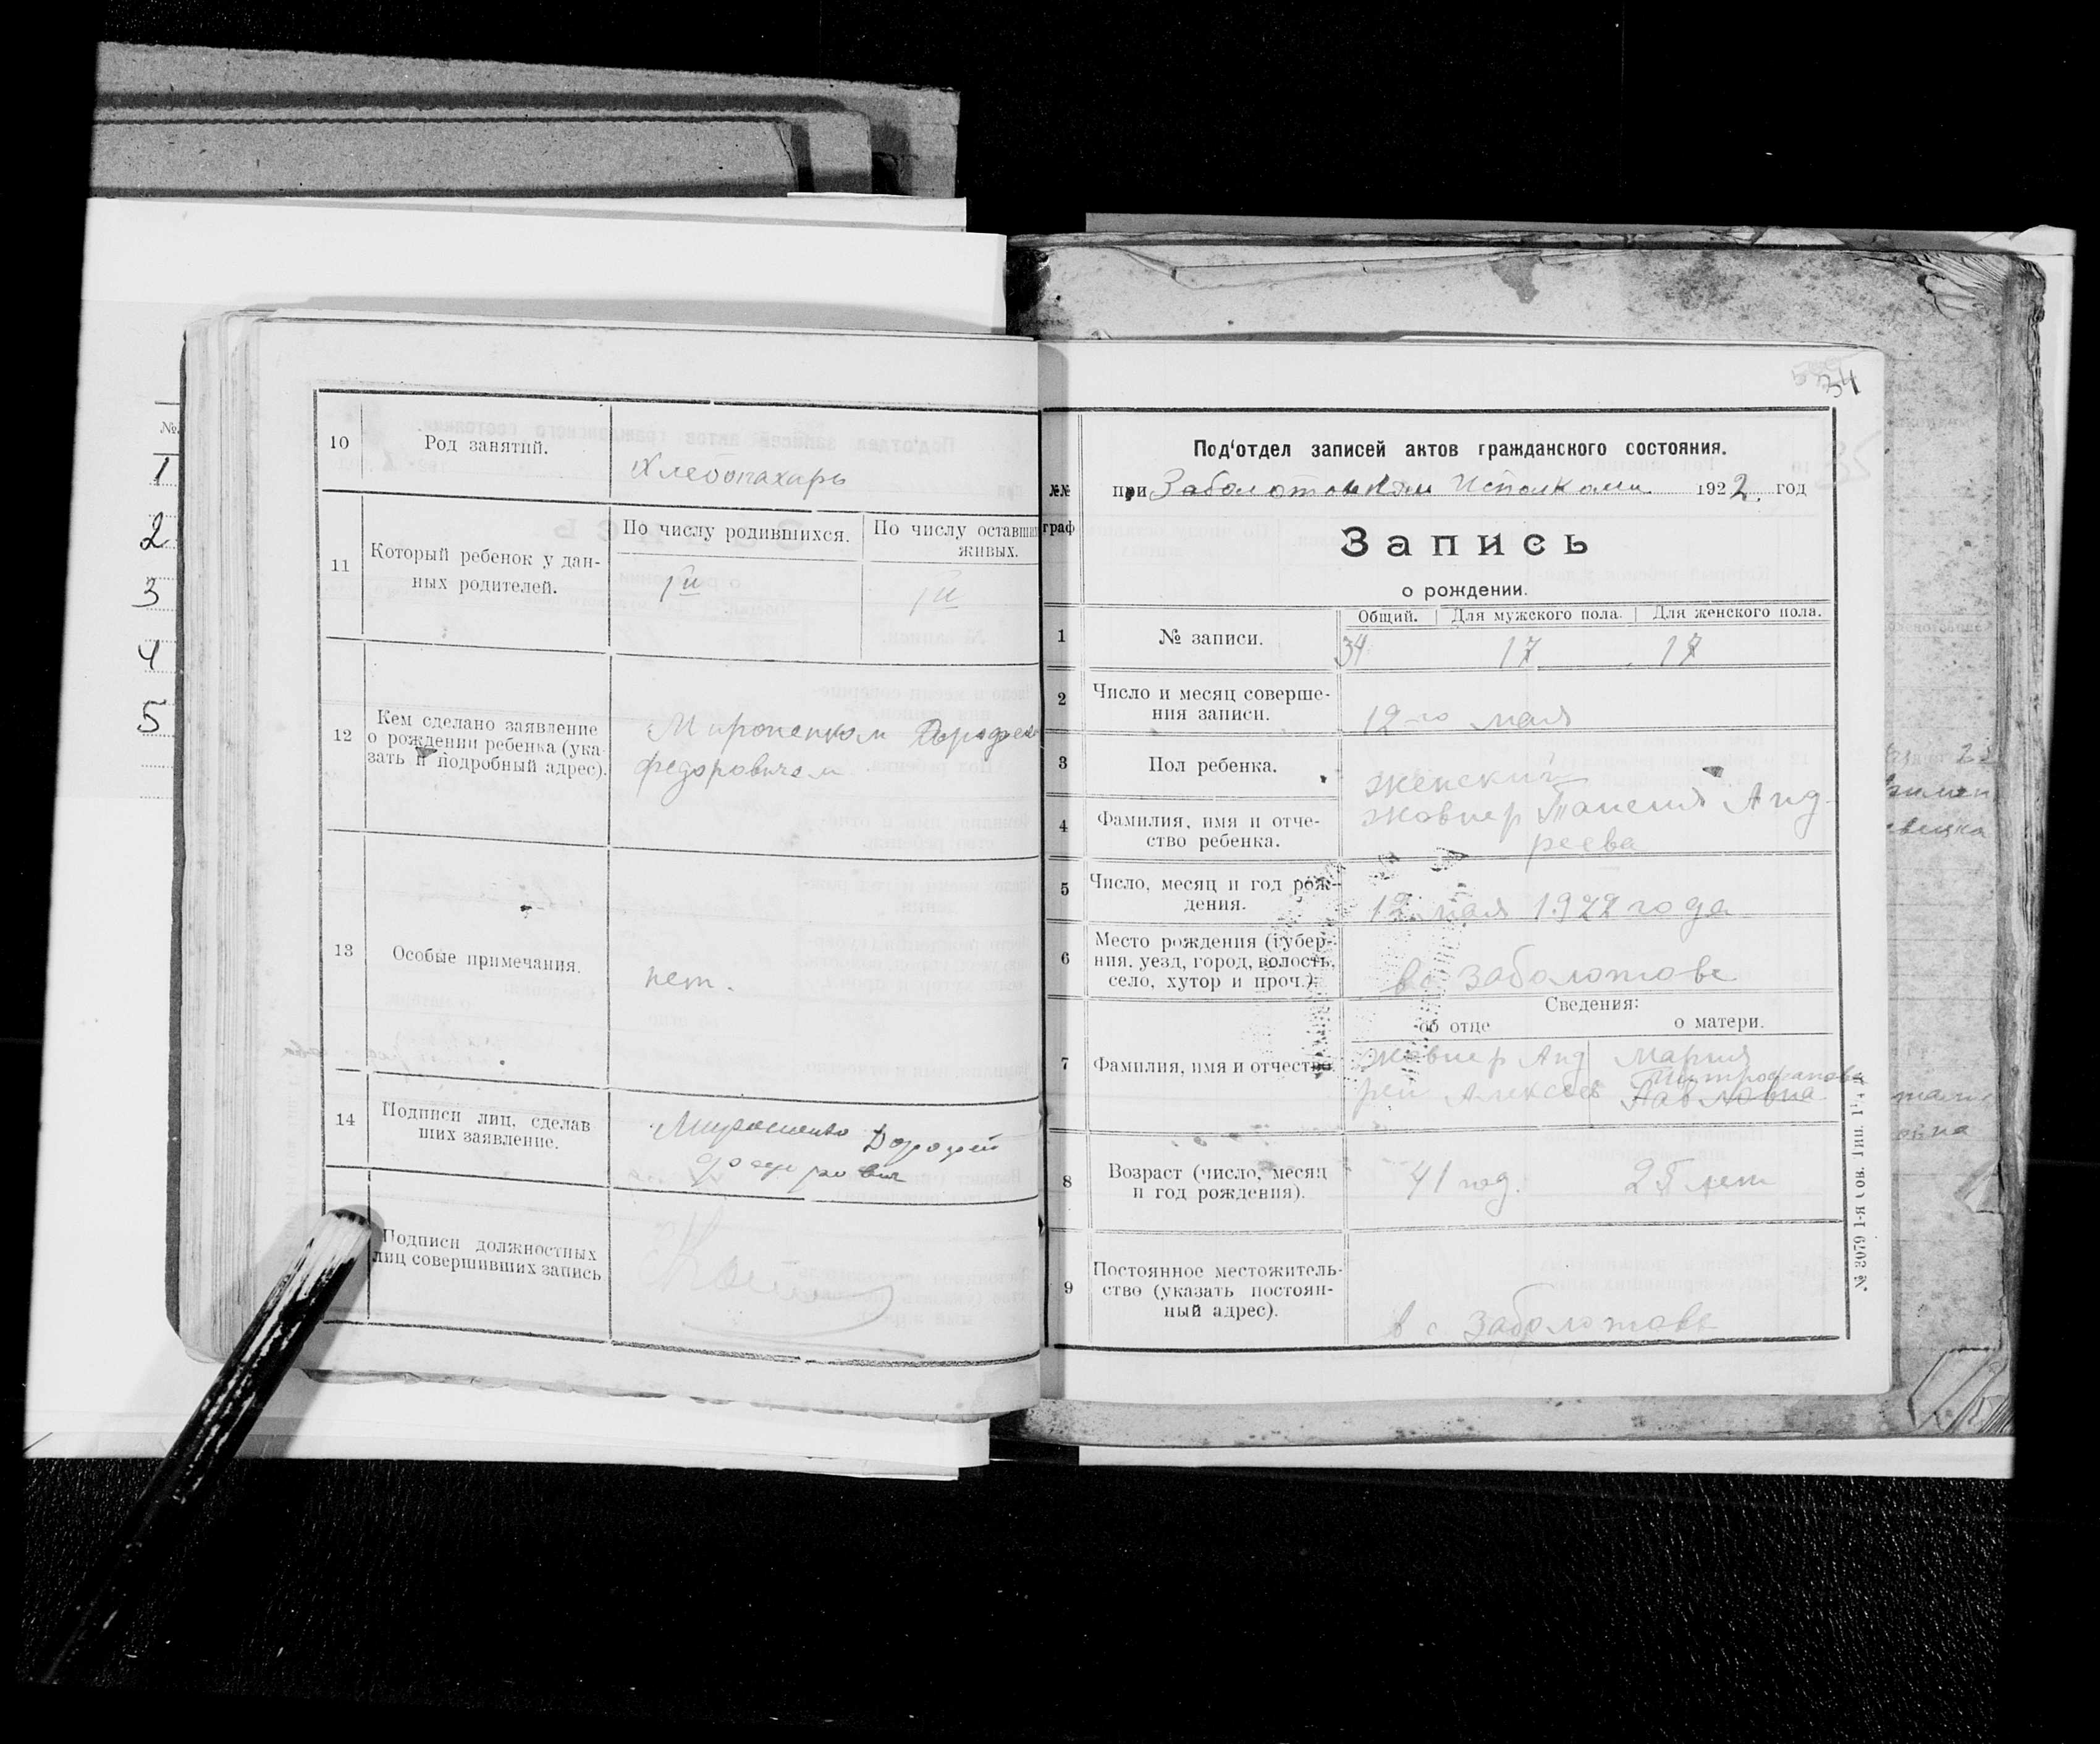 №
1
2
3
4
5
10
Род занятий.
Хлебопахарь
11
Который ребенок у дан-
ных родителей.
По числу родившихся.
По числу оставших
живых.
1й
1й
12
Кем сделано заявление
о рождении ребенка (ука-
зать и подробный адрес).
Мироненком Дорофеем
федоровичем
13
Особые примечания.
нет.
14
Подписи лиц, сделав
ших заявление.
Мироненко Дорофей
Подписи должностных
лиц совершивших запись
34
Под‘отдел записей актов гражданского состояния.
при Заболотовском Исполкоми 1922. год
№№
граф
Запись
о рождении.
1
№ записи.
Общий. Для мужского пола. Для женского пола.
34 17 17
2
Число и месяц соверше-
ния записи.
12-го мая
3
Пол ребенка.
женский
4
Фамилия, имя и отче-
ство ребенка.
Жовнер Таисия Анд-
реева
5
Число, месяц и год рож-
дения.
12 мая 1922 года
6
Место рождения (губер-
ния, уезд, город, волость,
село, хутор и проч.).
в с Заболотове
Сведения:
об отце
о матери.
7
Фамилия, имя и отчество
Жовнер Анд
рей Алексеев
Мария
Митрофанова
Павловна
8
Возраст (число, месяц
и год рождения).
41 год.
25 лет
9
Постоянное местожитель-
ство (указать постоян-
ный адрес).
в с Заболотове